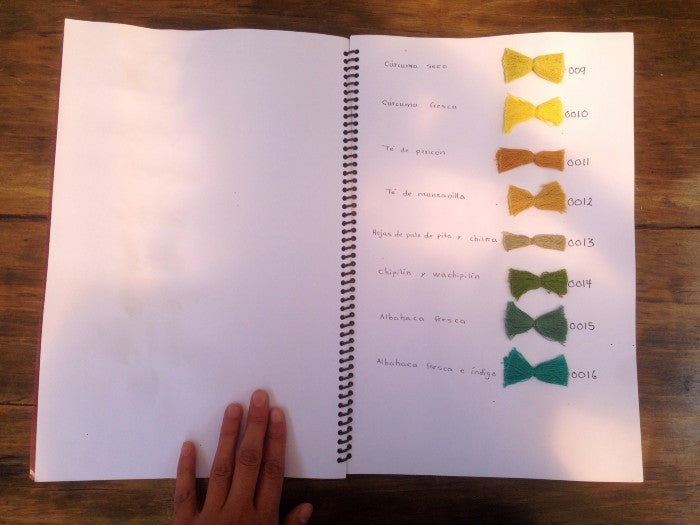 Cúrcuma seco 009
Cúrcuma fresca 0010
Té de pericón 0011
Té de manzanilla 0012
Hojas de palo de pito y chilca 0013
Chipilín y wachipilín 0014
Albahaca fresca 0015
Albahaca fresca e índigo 0016